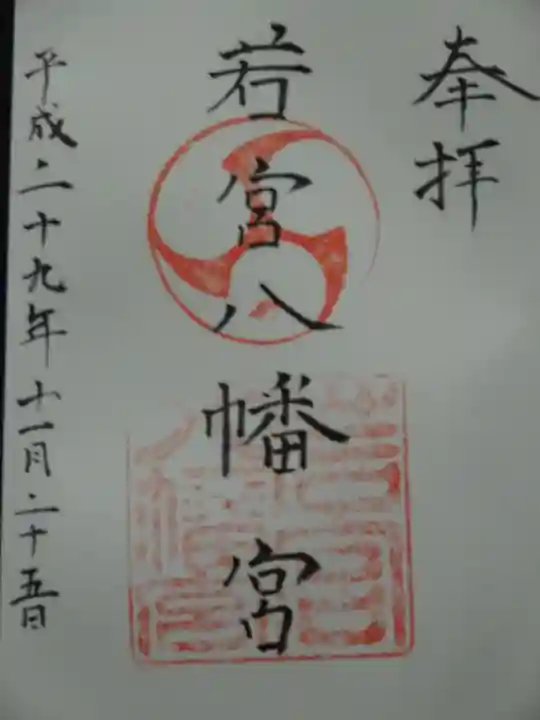 奉拝
若宮八幡宮
平成二十九年十一月二十五日